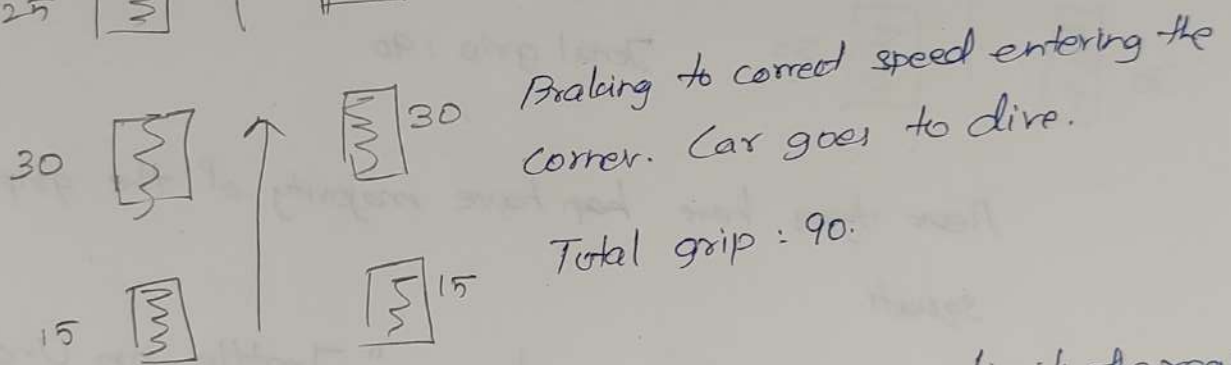 25
30
30
Braking to correct speed entering the
corner. Car goes to dive.
Total grip : 90.
15
15